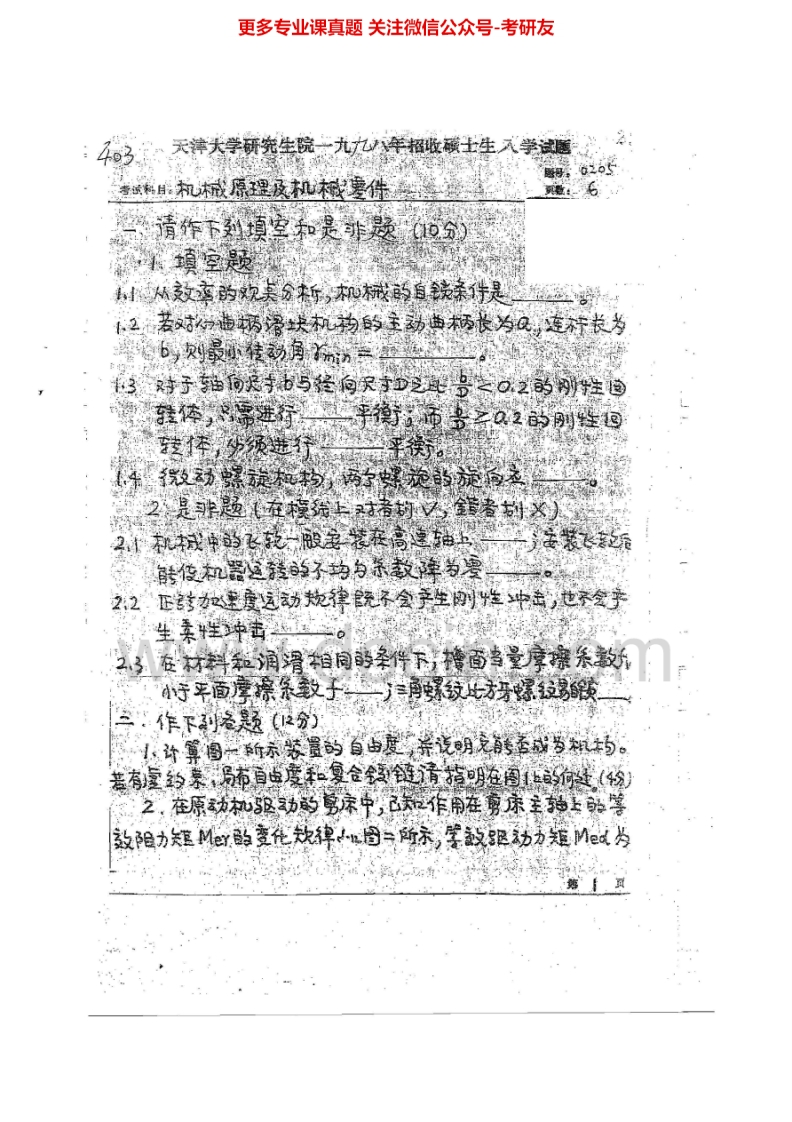 更多专业课真题 关注微信公众号-考研友
403
天津大学研究生院一九九八年招收硕士生入学试题
题号: 0205
考试科目: 机械原理及机械零件
页数: 6
一、请作下列填空和是非题 (10分)
1. 填空题
1.1 从效率的观点分析,机械的自锁条件是______。
1.2 若对心曲柄滑块机构的主动曲柄长为a,连杆长为
b,则最小传动角γmin=______。
1.3 对于轴向尺寸b与径向尺寸D之比 b/D≤0.2的刚性回
转体,只需进行____平衡;而 b/D≥0.2的刚性回
转体,必须进行____平衡。
1.4 微动螺旋机构,两个螺旋的旋向应____。
2. 是非题(在横线上对者打√,错者打X)
2.1 机械中的飞轮一般安装在高速轴上____;安装飞轮后
能使机器运转的不均匀系数降为零____。
2.2 正弦加速度运动规律既不会产生刚性冲击,也不会产
生柔性冲击____。
2.3 在材料和润滑相同的条件下,槽面当量摩擦系数f
小于平面摩擦系数f____;三角螺纹比方牙螺纹易自锁____
二、作下列各题 (12分)
1. 计算图一所示装置的自由度,并说明它能否成为机构。
若有虚约束、局部自由度和复合铰链请指明在图上的何处。(4分)
2. 在原动机驱动的剪床中,已知作用在剪床主轴上的等
效阻力矩Mer的变化规律如图二所示,等效驱动力矩Med为
第 1 页
www.docin.com